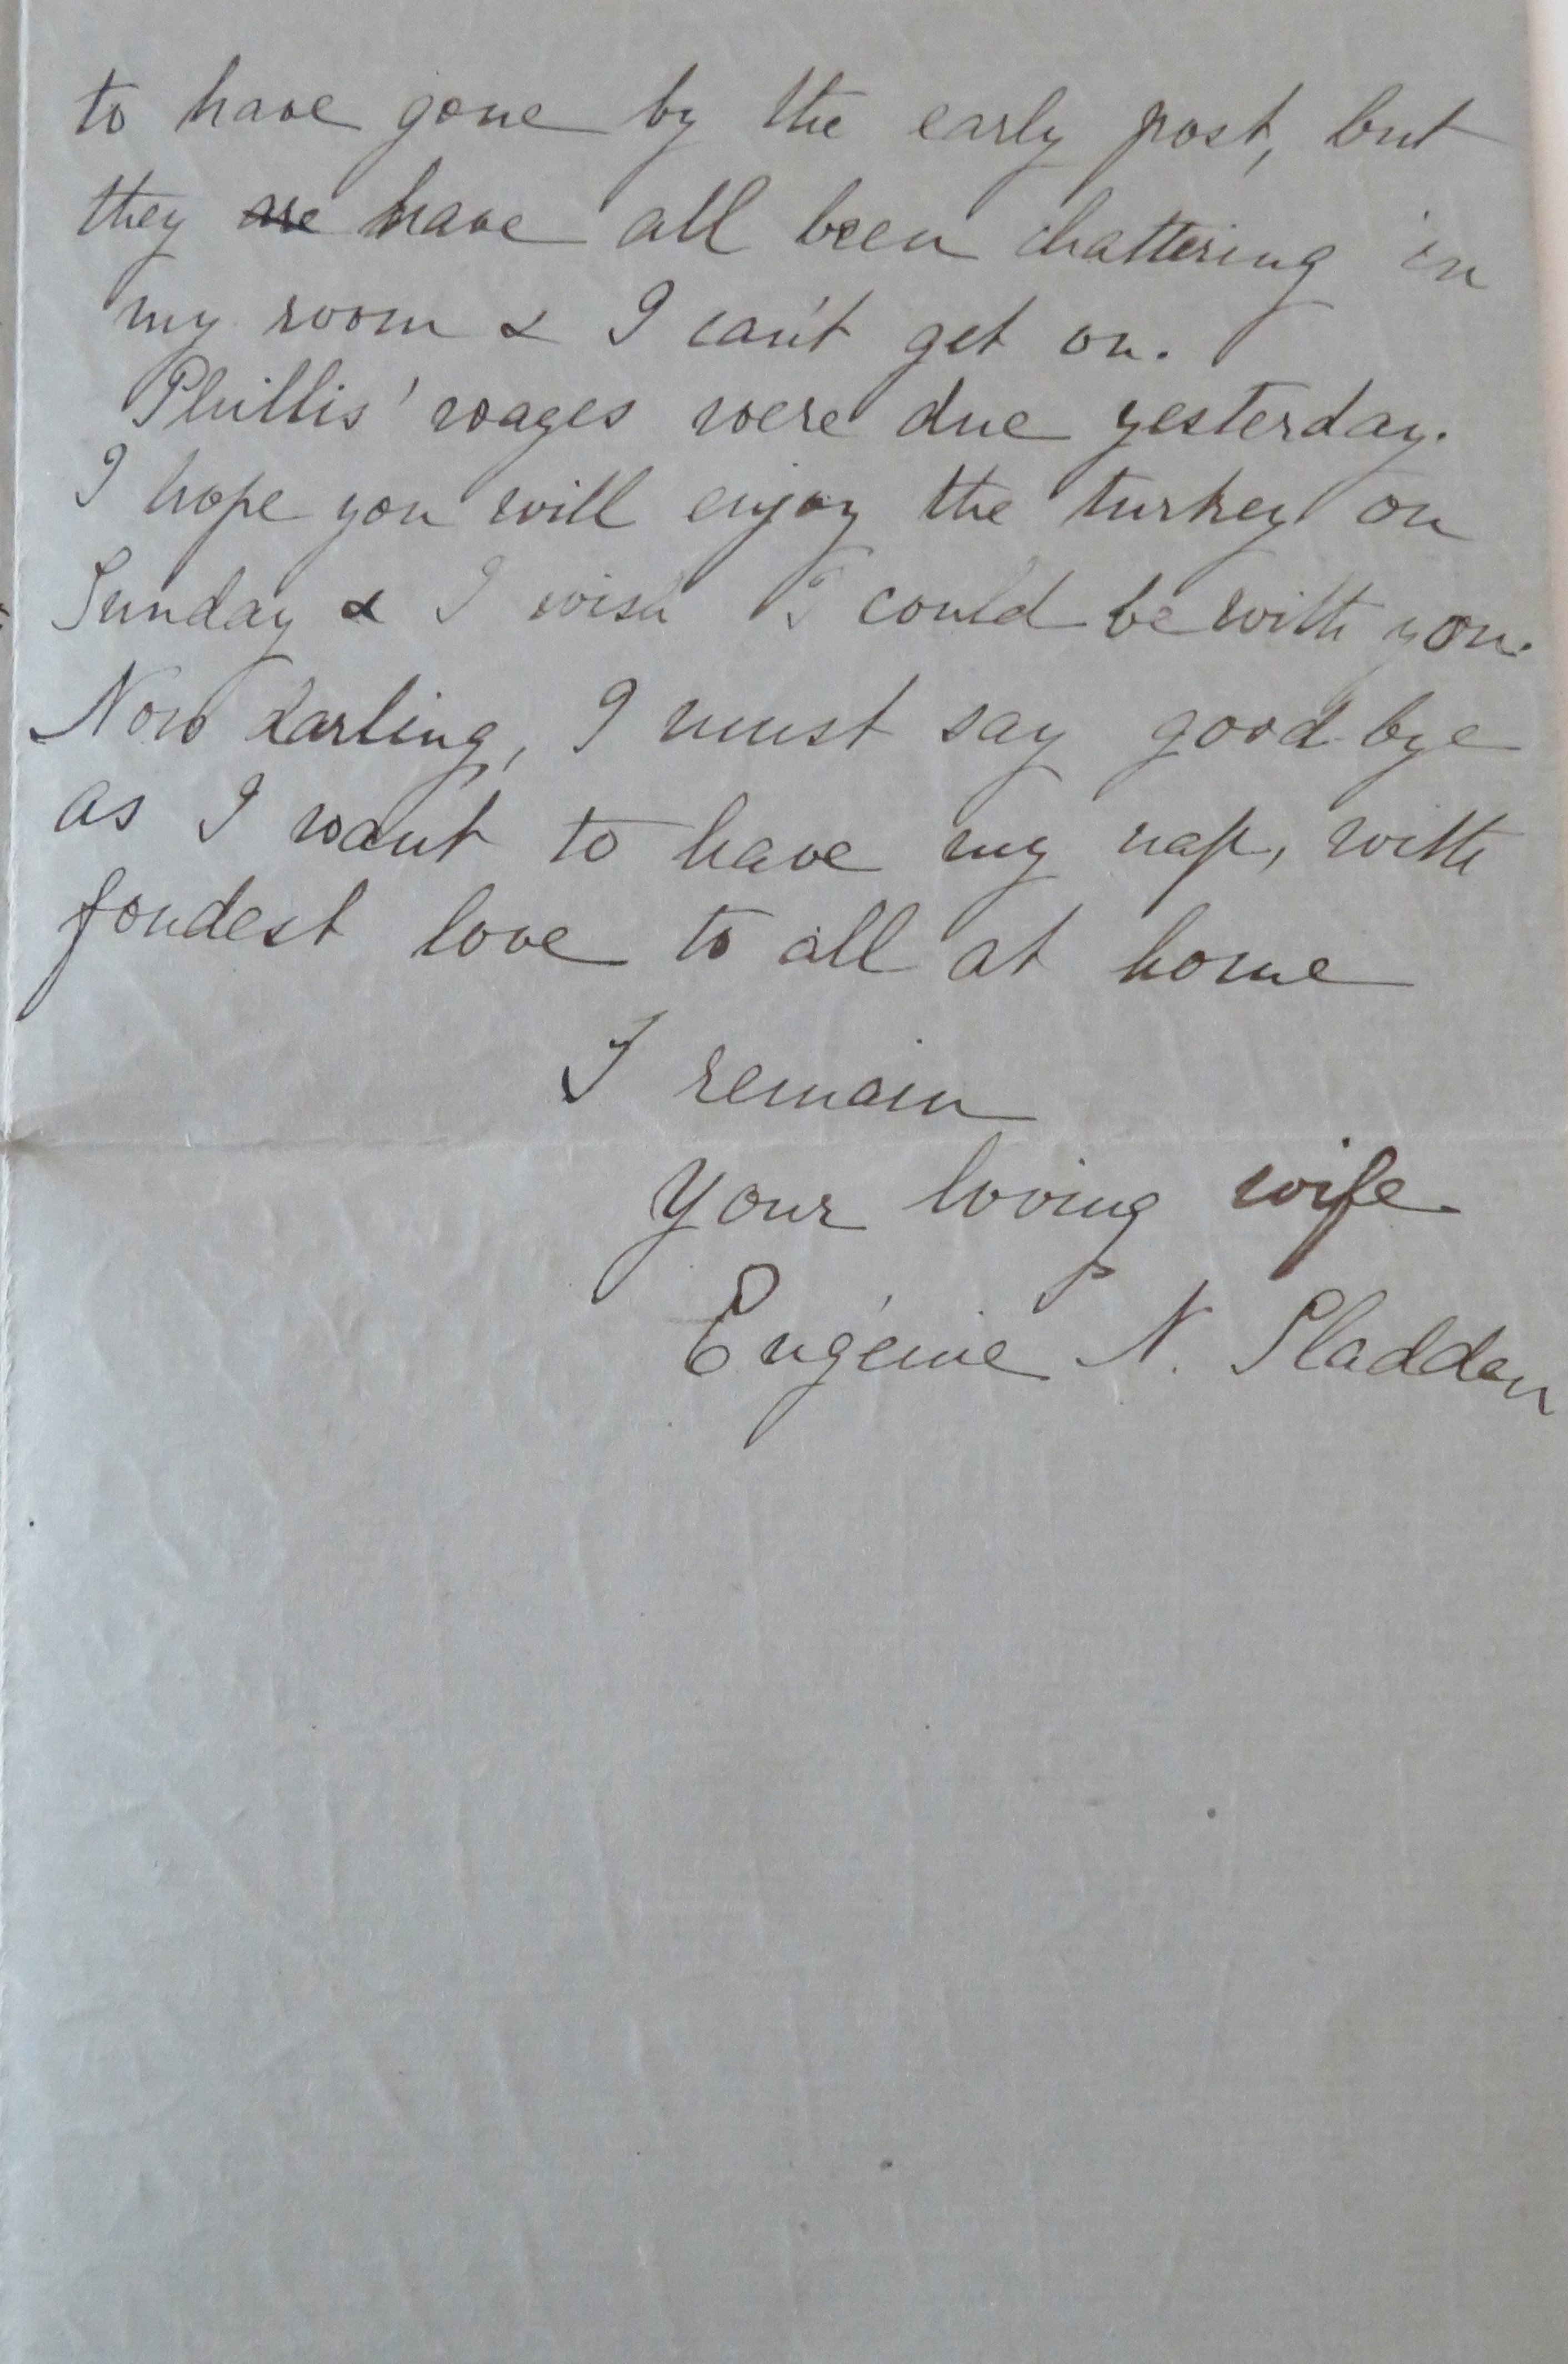 to have gone by the early post, but
they ~~are~~ have all been chattering in
my room & I can't get on.
Phillis' wages were due yesterday.
I hope you will enjoy the turkey on
Sunday & I wish I could be with you.
Now darling, I must say good-bye
as I want to have my nap, with
fondest love to all at home
I remain
Your loving wife
Eugénie N. Sladden